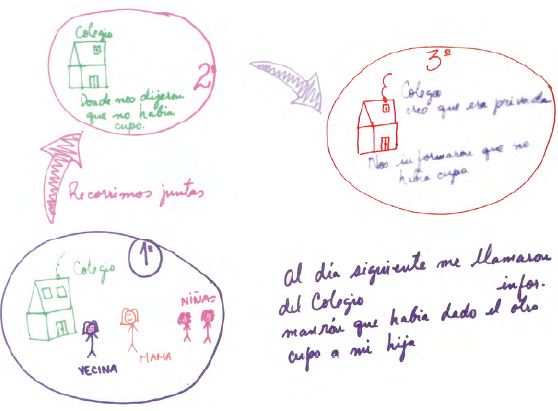 1º
Colegio
VECINA
MAMA
NIÑAS
Recorrimos juntas
2º
Colegio
Donde nos dijeron
que no habia
cupo.
3º
Colegio
creo que era privada
Nos informaron que no
habia cupo
Al día siguiente me llamaron
del Colegio infor-
maron que habia dado el otro
cupo a mi hija